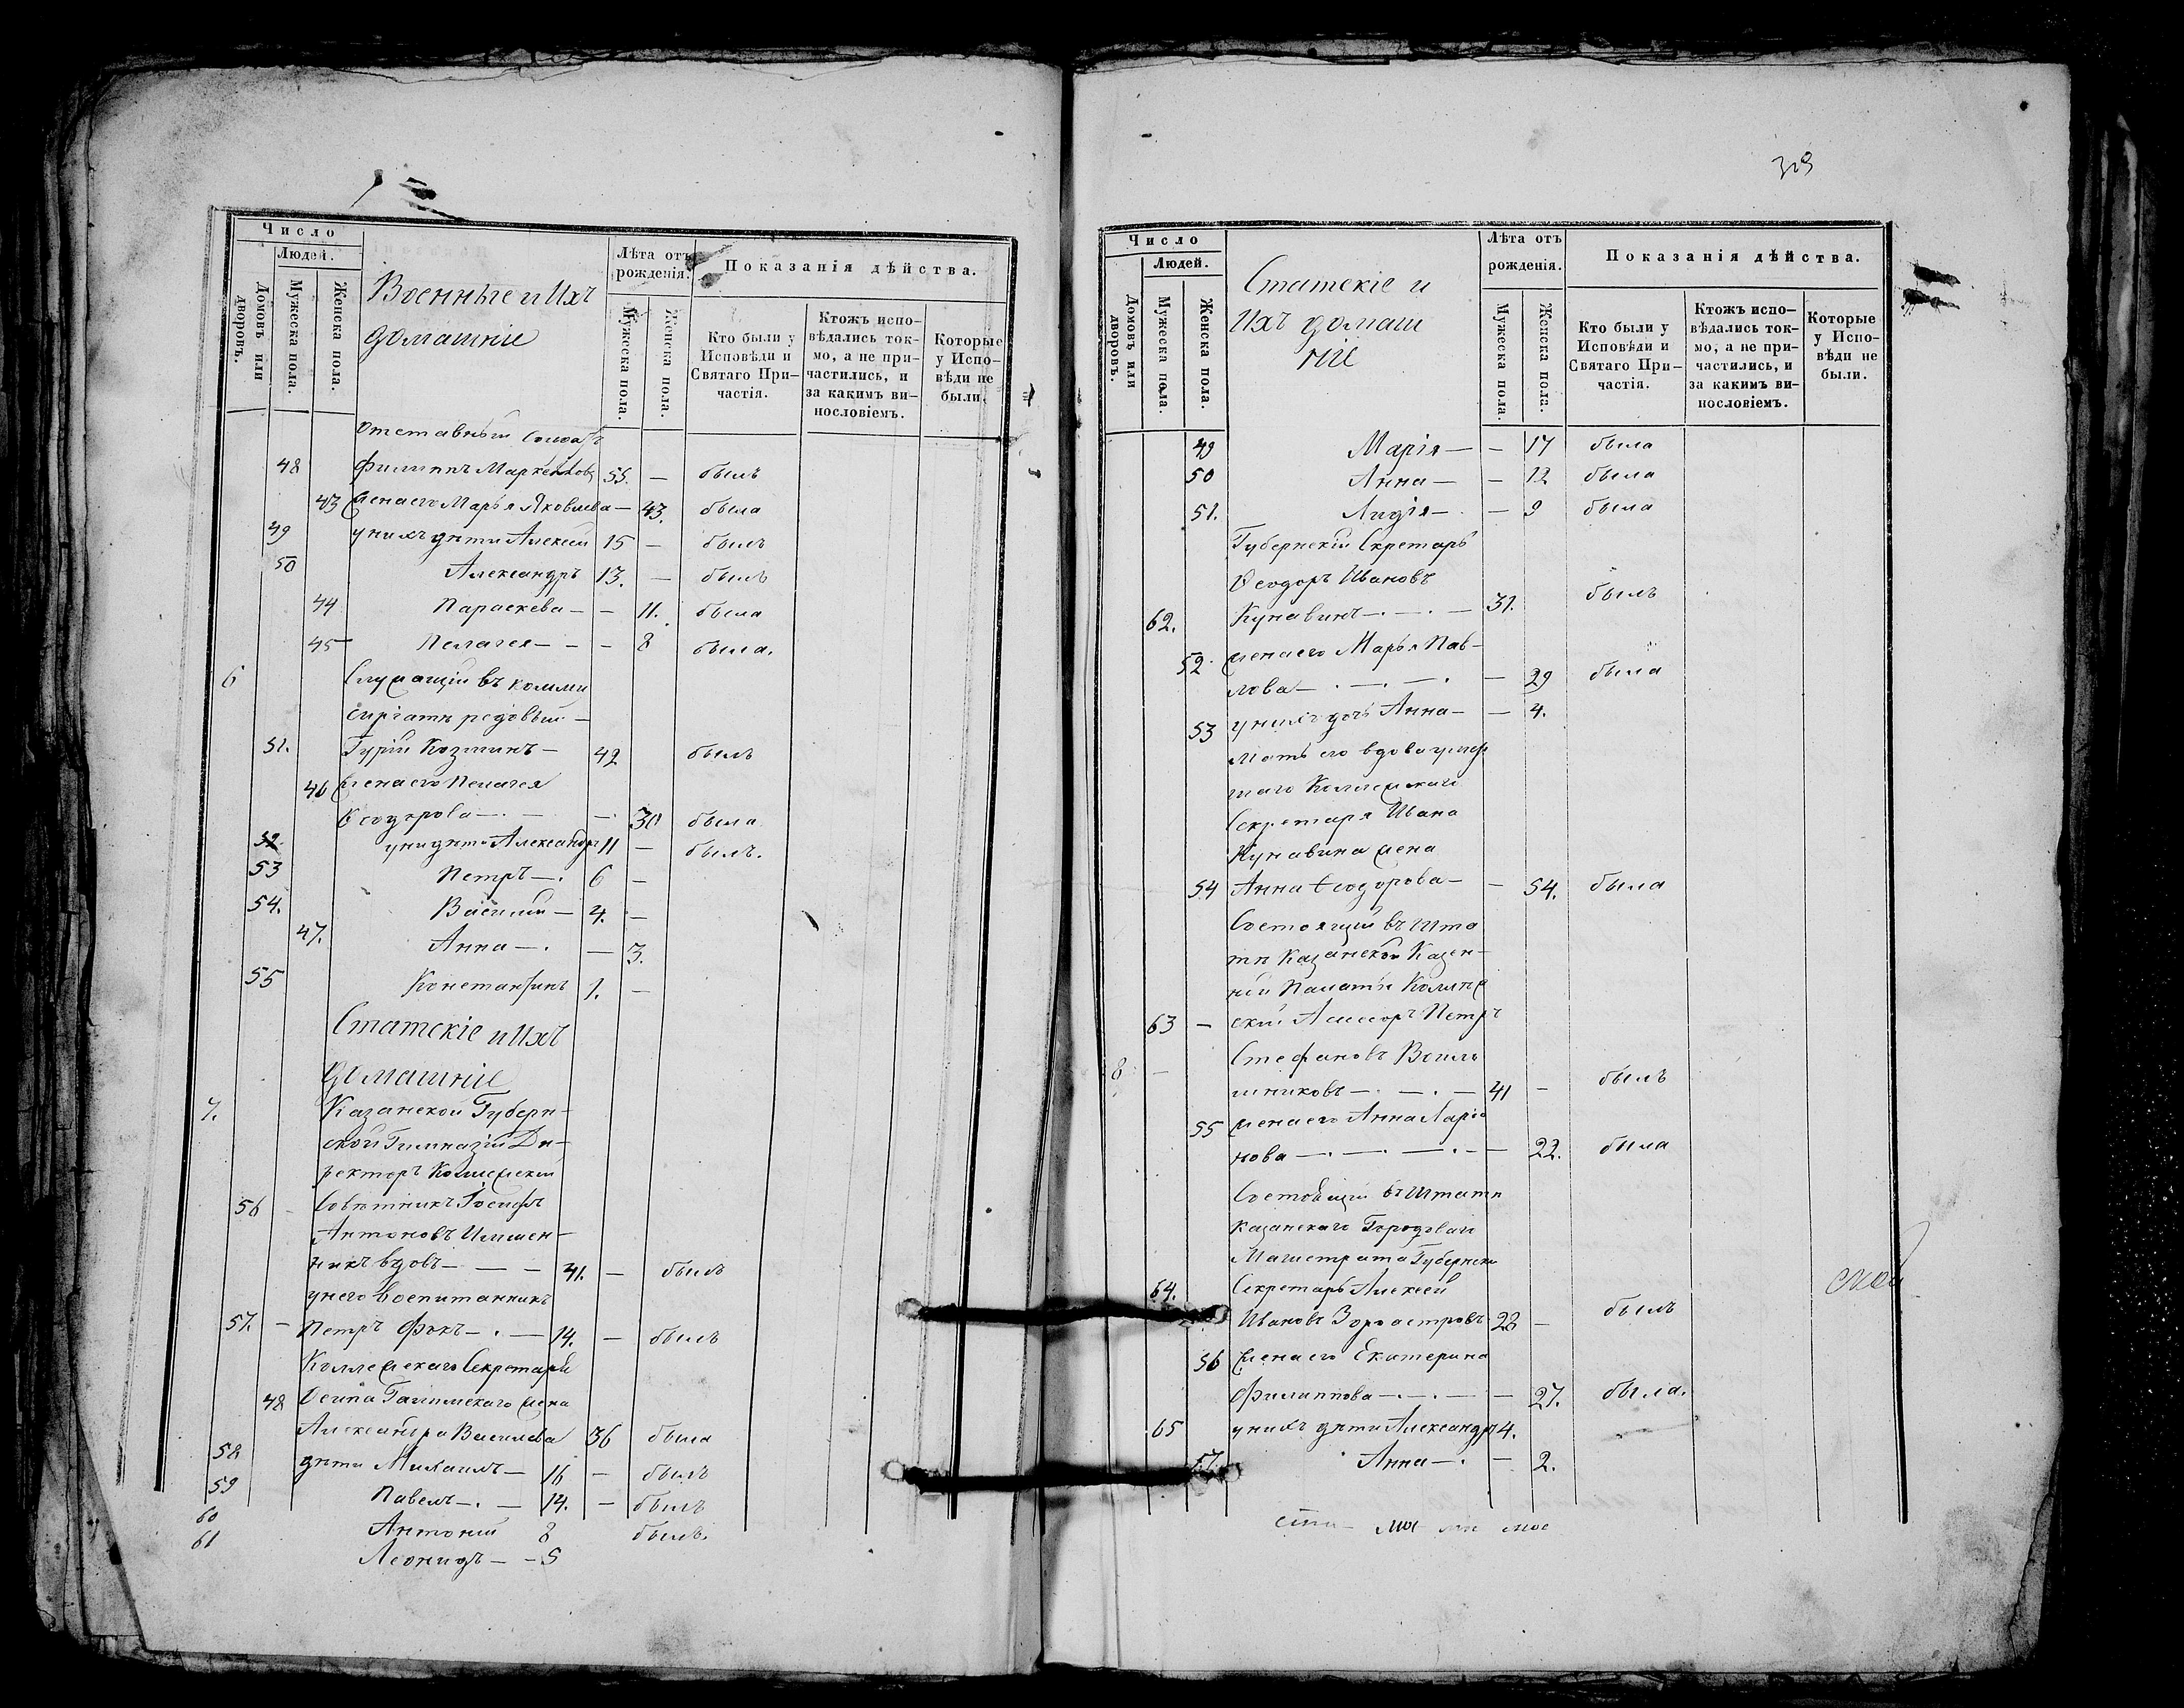 Число
Людей.
Домовъ или дворовъ.
Мужеска пола.
Женска пола.
Военные и Ихъ
домашніе
Лѣта отъ рожденія.
Мужеска пола.
Женска пола.
Показанія дѣйства.
Кто были у Исповѣди и Святаго Причастія.
Ктожъ исповѣдались токмо, а не причастились, и за какимъ винословіемъ.
Которые у Исповѣди не были.
Отставный Солдатъ
48 Филиппъ 55. — былъ
43 Жена его Марья Яковлева — 43. была
49 у нихъ дѣти Алексей 15 — былъ
50 Александръ 13. — былъ
44 Параскева — — 11. была
45 Пелагея — — — 8 была.
6 Служащій въ комми
сиріатѣ редовый —
51. Гурій Козминъ — 42 былъ
46 Жена его Пелагея
Ѳеодорова — . — — . 30 была
52. у ни дѣти Александръ 11 — былъ.
53 Петръ — . 6 —
54. Василій — 4. —
47. Анна — . — 3.
55 Константинъ 1. —
Статскіе и Ихъ
домашніе
7. Казанской Губерн-
ской Гимназіи Ди-
ректоръ Коллежскій
56 Совѣтникъ Іосифъ
Антоновъ
вдовъ — — — 41. — былъ
у него воспитанникъ
57. — Петръ Фокъ — . — 14. — былъ
Коллежскаго Секретаря
48 Осипа жена
Александра Васильева 36 была
58 дѣти Михаилъ — 16 — былъ
59 Павелъ — . — 14. — былъ
60 Антоній 8 былъ.
61 Леонидъ — — 5
309
Число
Людей.
Домовъ или дворовъ.
Мужеска пола.
Женска пола.
Статскіе и
Ихъ домаш
ніе
Лѣта отъ рожденія.
Мужеска пола.
Женска пола.
Показанія дѣйства.
Кто были у Исповѣди и Святаго Причастія.
Ктожъ исповѣдались токмо, а не причастились, и за какимъ винословіемъ.
Которые у Исповѣди не были.
49 Марія — — 17 была
50 Анна — — 12 была
51. Лидія — . — 9 была
Губернскій Секретарь
Ѳеодоръ Ивановъ
62. Кунавинъ — . — . — 31. былъ
52. Жена его Марья Пав-
лова — . — . — . — 29 была
53 у нихъ дочь Анна — — 4.
Мать его вдова умер
шаго Коллежскаго
Секретаря Ивана
Кунавина жена
54 Анна Ѳеодорова — — 54. была
Состоящій въ Шта
тѣ Казанской Казен-
ной Палаты Коллеж
63 — скій Асессоръ Петръ
8 — Стефановъ
шниковъ — . — . — 41 — былъ
55 Жена его Анна Ларіо
нова — . — . — . — — 22. была
Состоящій въ Штатѣ
Казанскаго Городоваго
Магистрата Губернскій
64. Секретарь Алексей
Ивановъ Зороастровъ 28 — былъ
56 Жена его Екатерина
Филиппова — . — . — — 27. была.
65 у нихъ дѣти Александръ 4.
57. Анна — . — 2.